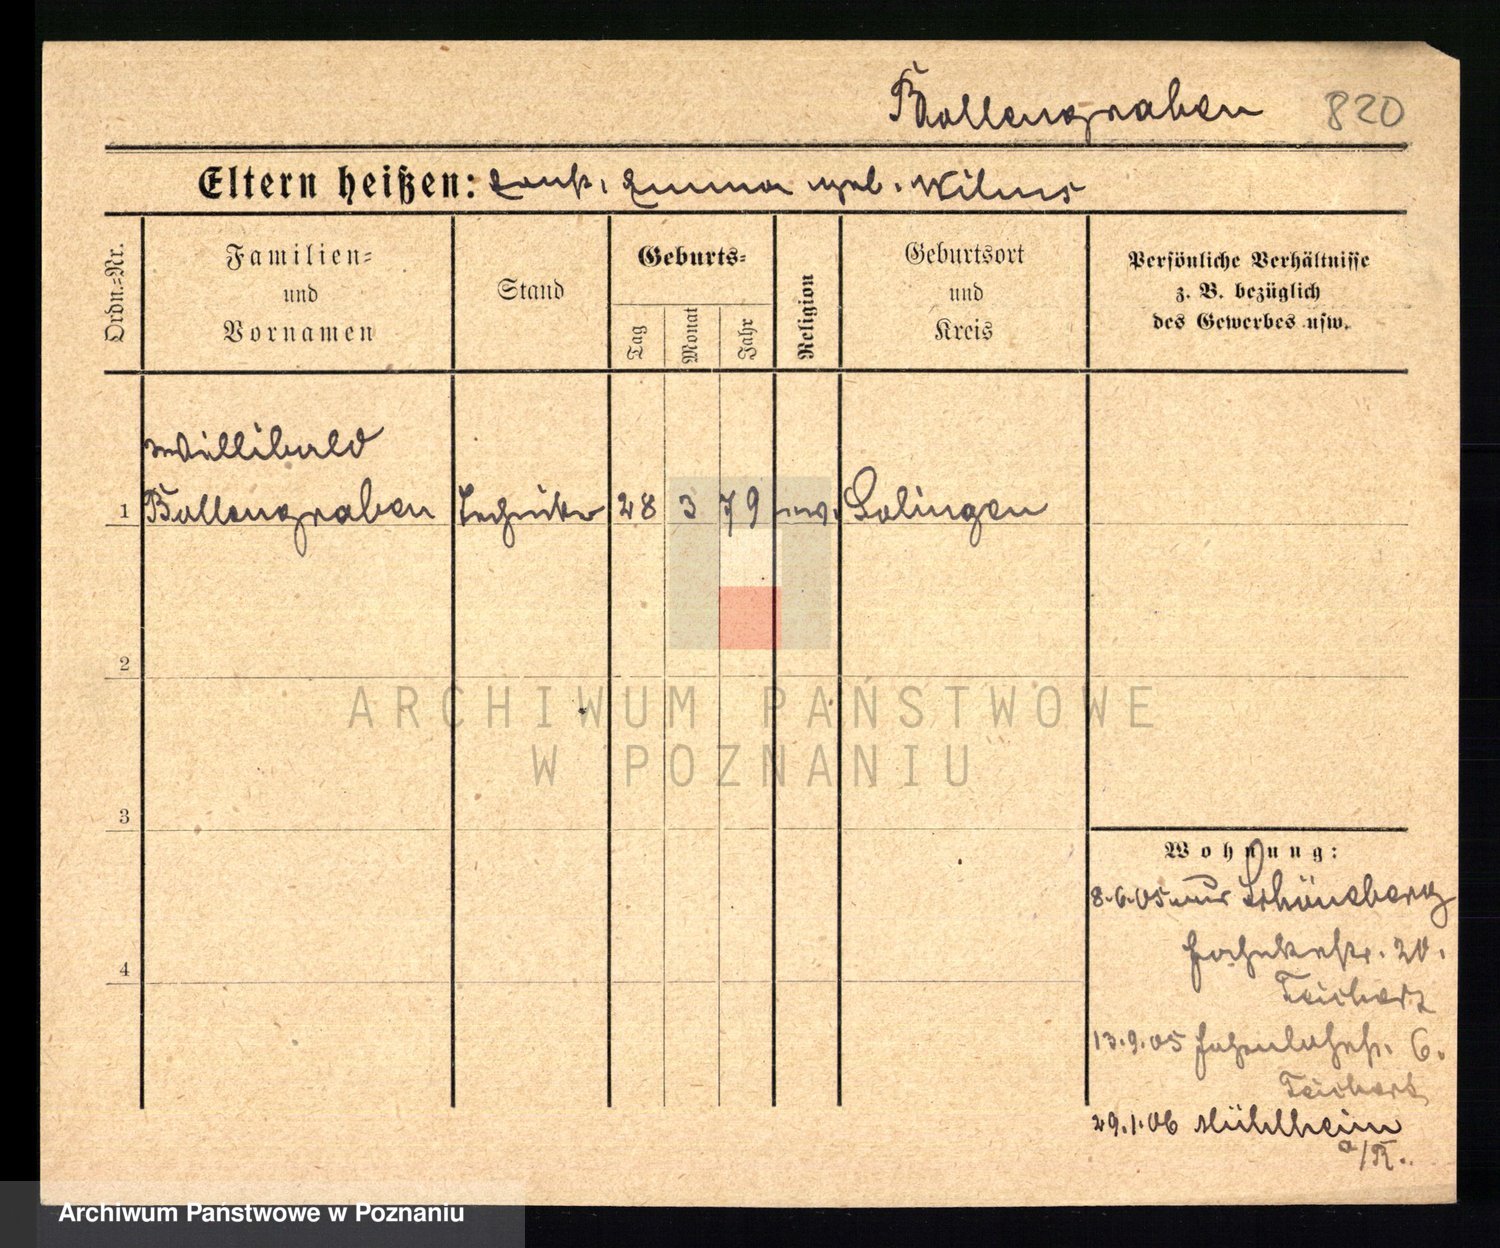 Bollengraben 820
Eltern heißen: Emma geb. Wilms
Ordn.-Nr.
Familien-
und
Vornamen
Stand
Geburts-
Tag
Monat
Jahr
Religion
Geburtsort
und
Kreis
Persönliche Verhältnisse
z. B. bezüglich
des Gewerbes usw.
Willibald
1 Bollengraben Techniker 28 3 79 ev. Solingen
2
3
4
Wohnung:
8.6.05 aus Schöneberg
20.
Teichert
13.9.05 6.
Teichert
29.1.06 Mühlheim
a/R.
ARCHIWUM PAŃSTWOWE
W POZNANIU
Archiwum Państwowe w Poznaniu